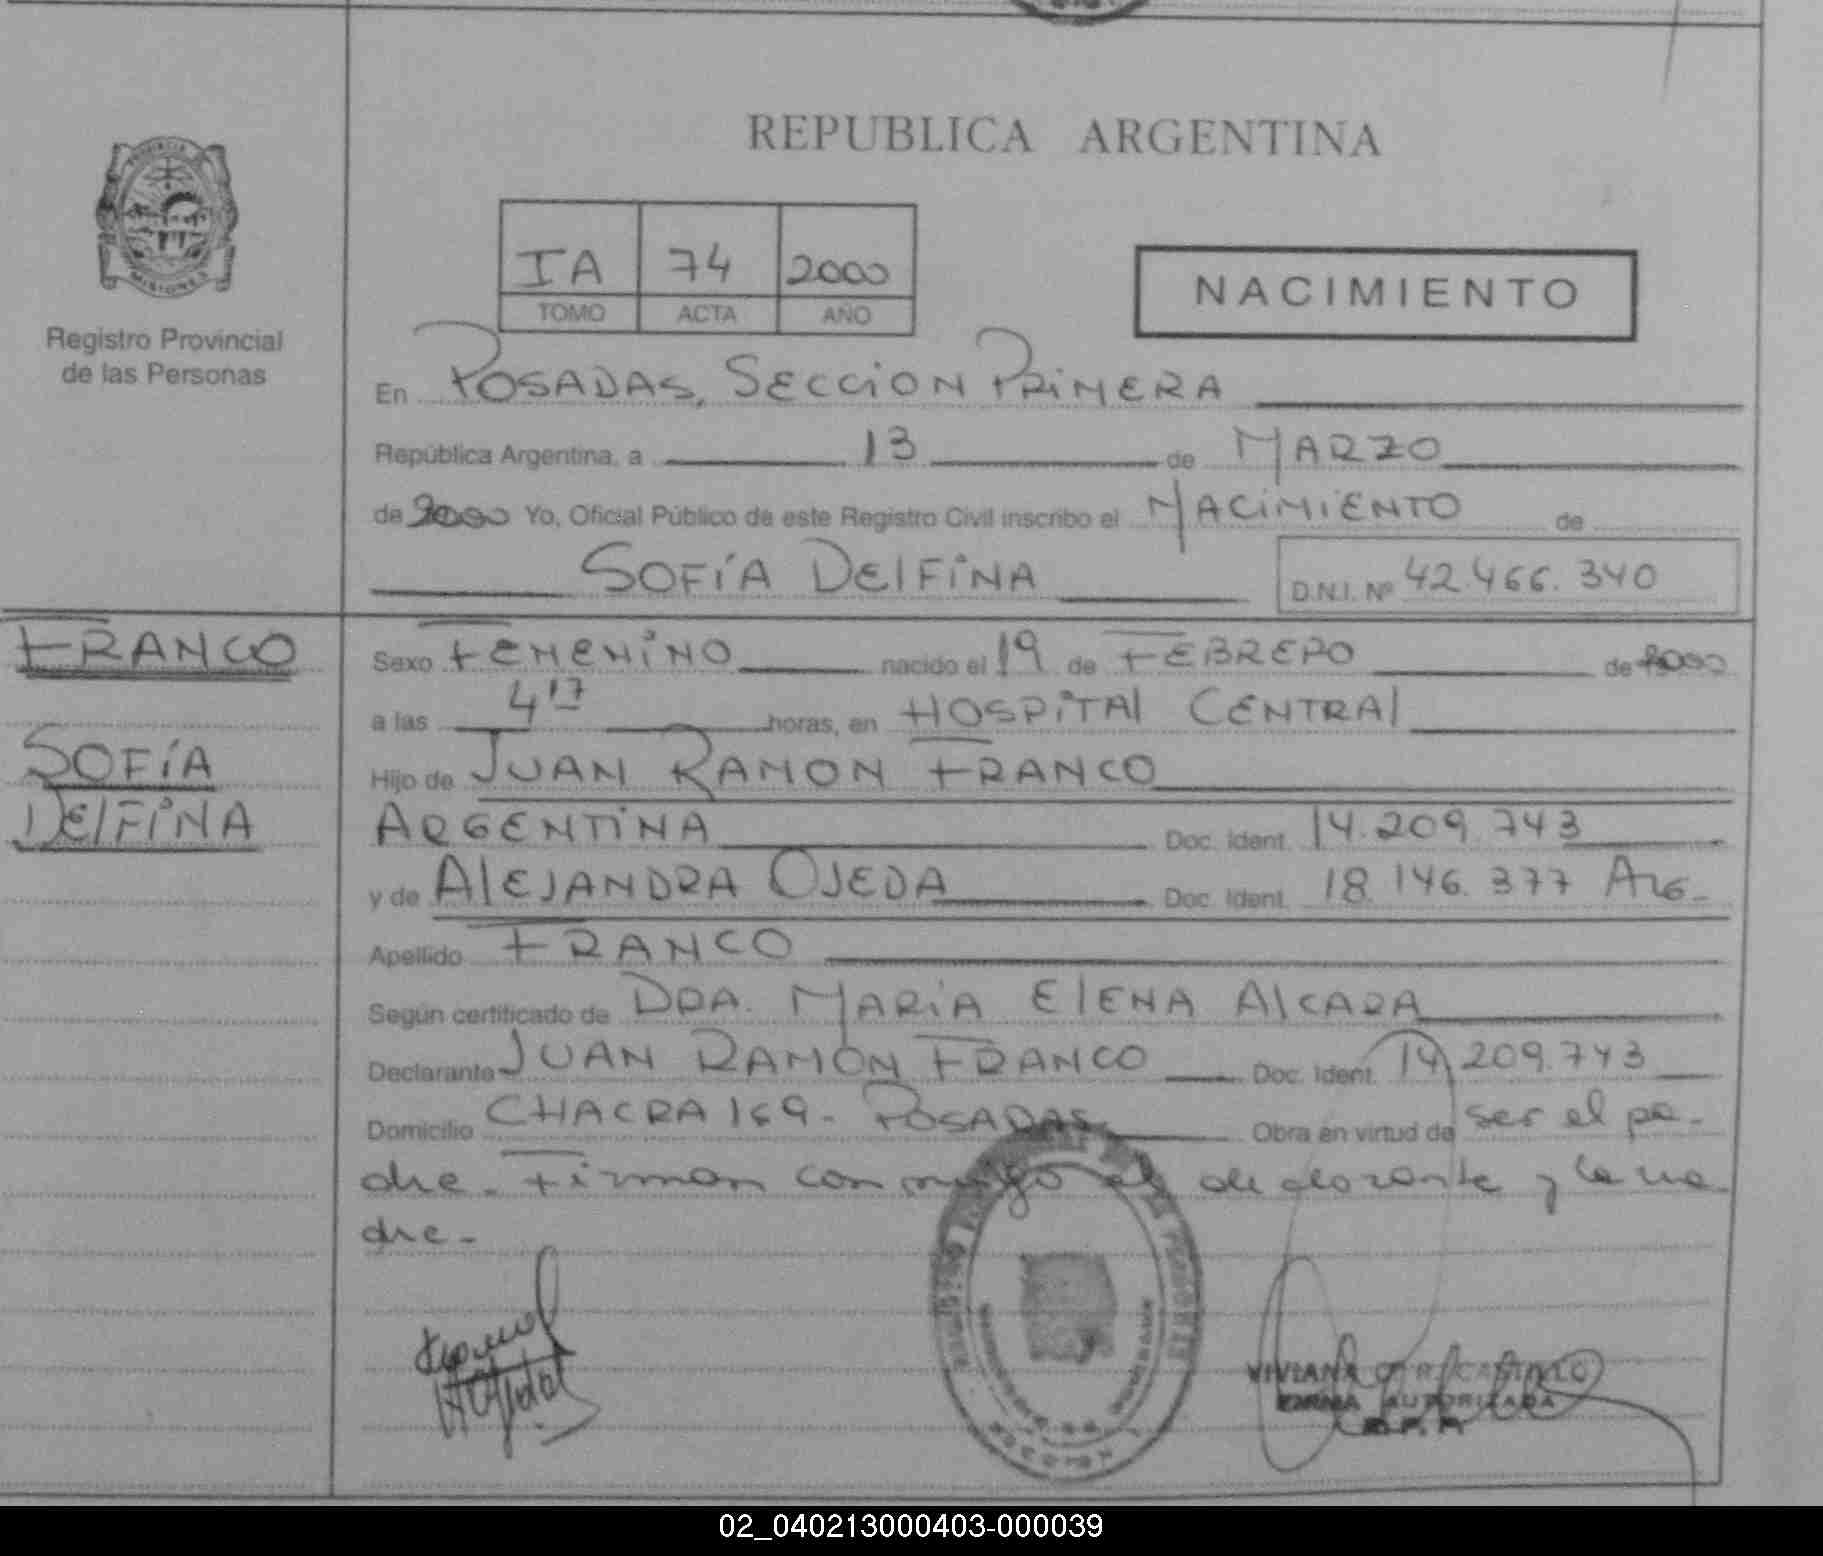 REPUBLICA ARGENTINA
PROVINCIA DE
MISIONES
Registro Provincial
de las Personas
IA 74 2000
TOMO ACTA AÑO
NACIMIENTO
En POSADAS, SECCION PRIMERA
República Argentina, a 13 de MARZO
de 2000 Yo, Oficial Público de este Registro Civil inscribo el NACIMIENTO de
SOFÍA DELFINA D.N.I. Nº 42.466.340
FRANCO
SOFÍA
DELFINA
Sexo FEMENINO nacido el 19 de FEBRERO de 2000
a las 4 17 horas, en HOSPITAL CENTRAL
Hijo de JUAN RAMON FRANCO
ARGENTINA Doc. Ident. 14.209.743
y de ALEJANDRA OJEDA Doc. Ident. 18.146.377 ARG.
Apellido FRANCO
Según certificado de DRA. MARÍA ELENA ALCARA
Declarante JUAN RAMÓN FRANCO Doc. Ident. 14.209.743
Domicilio CHACRA 169 - POSADAS Obra en virtud de ser el pa-
dre. Firman conmigo el declarante y la ma-
dre -
VIVIANA CASTILLO
FIRMA AUTORIZADA
02_040213000403-000039